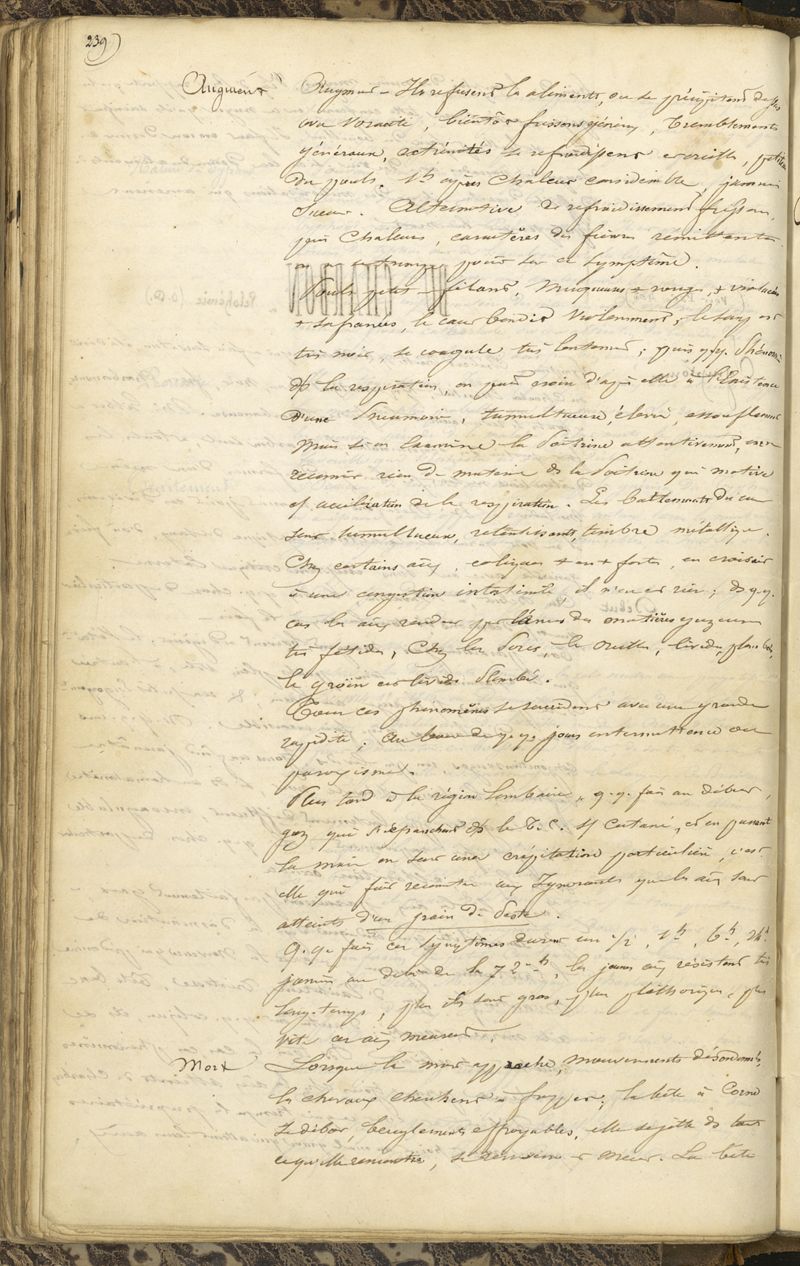 239)
Augment Ruminer - Ils refusent les aliments, ou se précipitent dessus
avec voracité, bientôt frissons généraux, tremblements
généraux, extrémités se refroidissent oreilles, petitesse
du pouls. 1h après chaleur considérable, jamais
sueur. Alternative de refroidissement frisson,
puis chaleurs, caractères des fièvres rémittentes
pour sur ce symptôme.
Pouls petit - filant, muqueuses + rouges, + violacées
+ safranées, le cœur bondit violemment, le sang est
très noir, se coagule très lentement; puis
de la respiration, on peut croire d'après elle à l'existence
d'une Pneumonie, tumultueuse, élevée, essoufflement
Mais si on examine la Poitrine attentivement, on ne
reconnait rien de matériel de la Poitrine qui motive
accélération de la respiration. Les battements du cœur
sont tumultueux, retentissants, timbre métallique.
Chez certains aux, coliques + ou + fortes, on croirait
à une congestion intestinale, il n'en est rien; ds q.q.
cas les aux rendent par l'anus des matières gazeuses
très fétides, Chez les Porcs, les oreilles, livides, plombées,
le groin est livide Plombé.
Tous ces phénomènes se succèdent avec une grande
rapidité; au bout de q.q. jours intermittence ou
paroxisme.
Plus tard à la région lombaire, q.q. fois au début,
gaz qui s'épanchent ds le T. C. s/ cutané, et en passant
la main on sent une crépitation particulière, c'est
elle qui fait reconnaitre aux Ignorants que les aux sont
atteints d'un grain de Peste.
Q.q. fois ces symptômes durent un 1/2, 1h, 6h, 24h
jamais au delà de la 72e h, les jeunes aux résistent très
long-temps, plus ils sont gros, plus pléthoriques, plus
vite ces aux meurent.
Mort Lorsque la mort approche, mouvements désordonnés,
les chevaux cherchent à frapper; la bête à Corne
se débat, beuglements effroyables, elle se jette ds tout
ce qu'elle rencontre, se et meurt. La bête